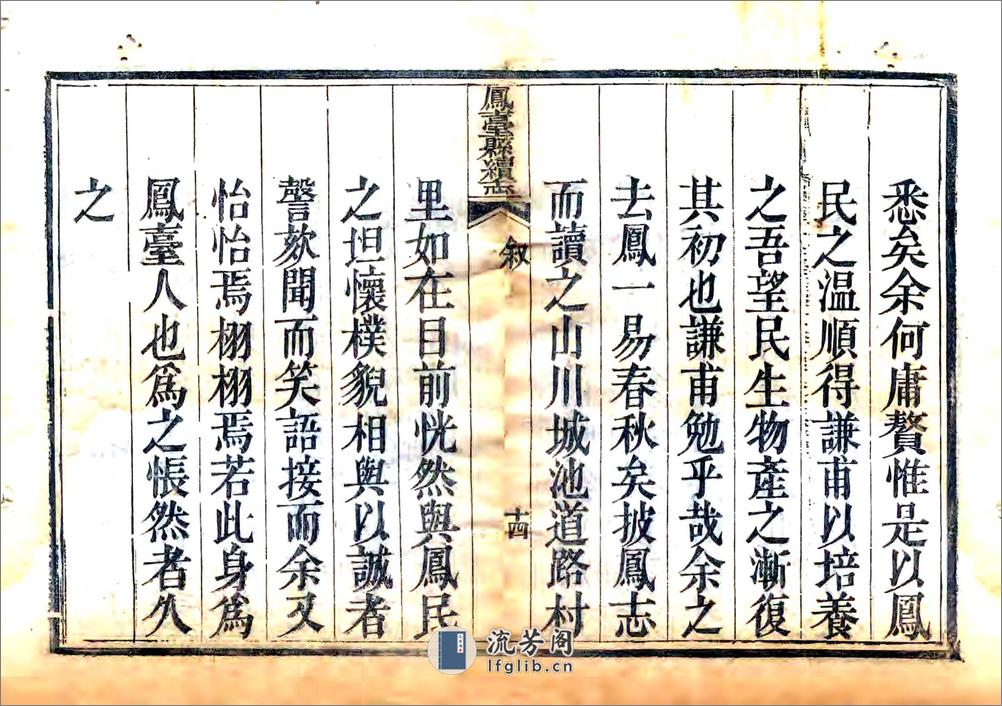 悉矣余何庸贅惟是以鳳
民之温順得謙甫以培養
之吾望民生物產之漸復
其初也謙甫勉乎哉余之
去鳳一易春秋矣披鳳志
而讀之山川城池道路村
鳳臺縣續志
叙
十四
里如在目前恍然與鳳民
之坦懷樸貌相與以誠者
謦欬聞而笑語接而余又
怡怡焉栩栩焉若此身爲
鳳臺人也爲之悵然者久
之
流芳阁
lfglib.cn